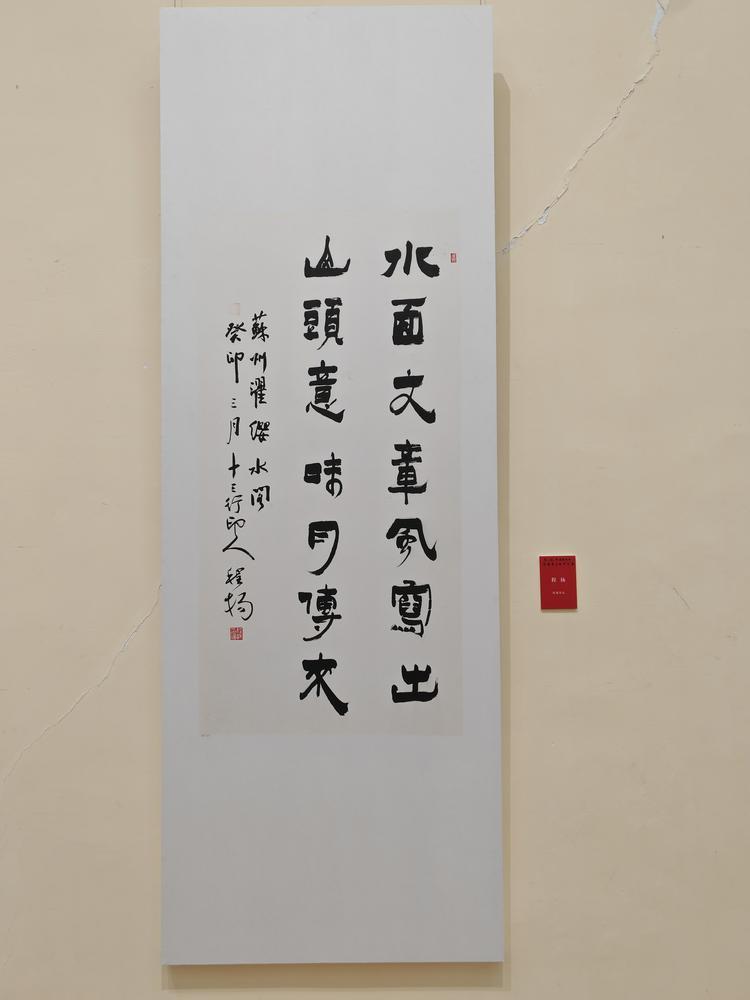 水面文章風寫出
山頭意味月傳來
蘇州濯纓水閣
癸卯三月十三行印人程揚
程 扬